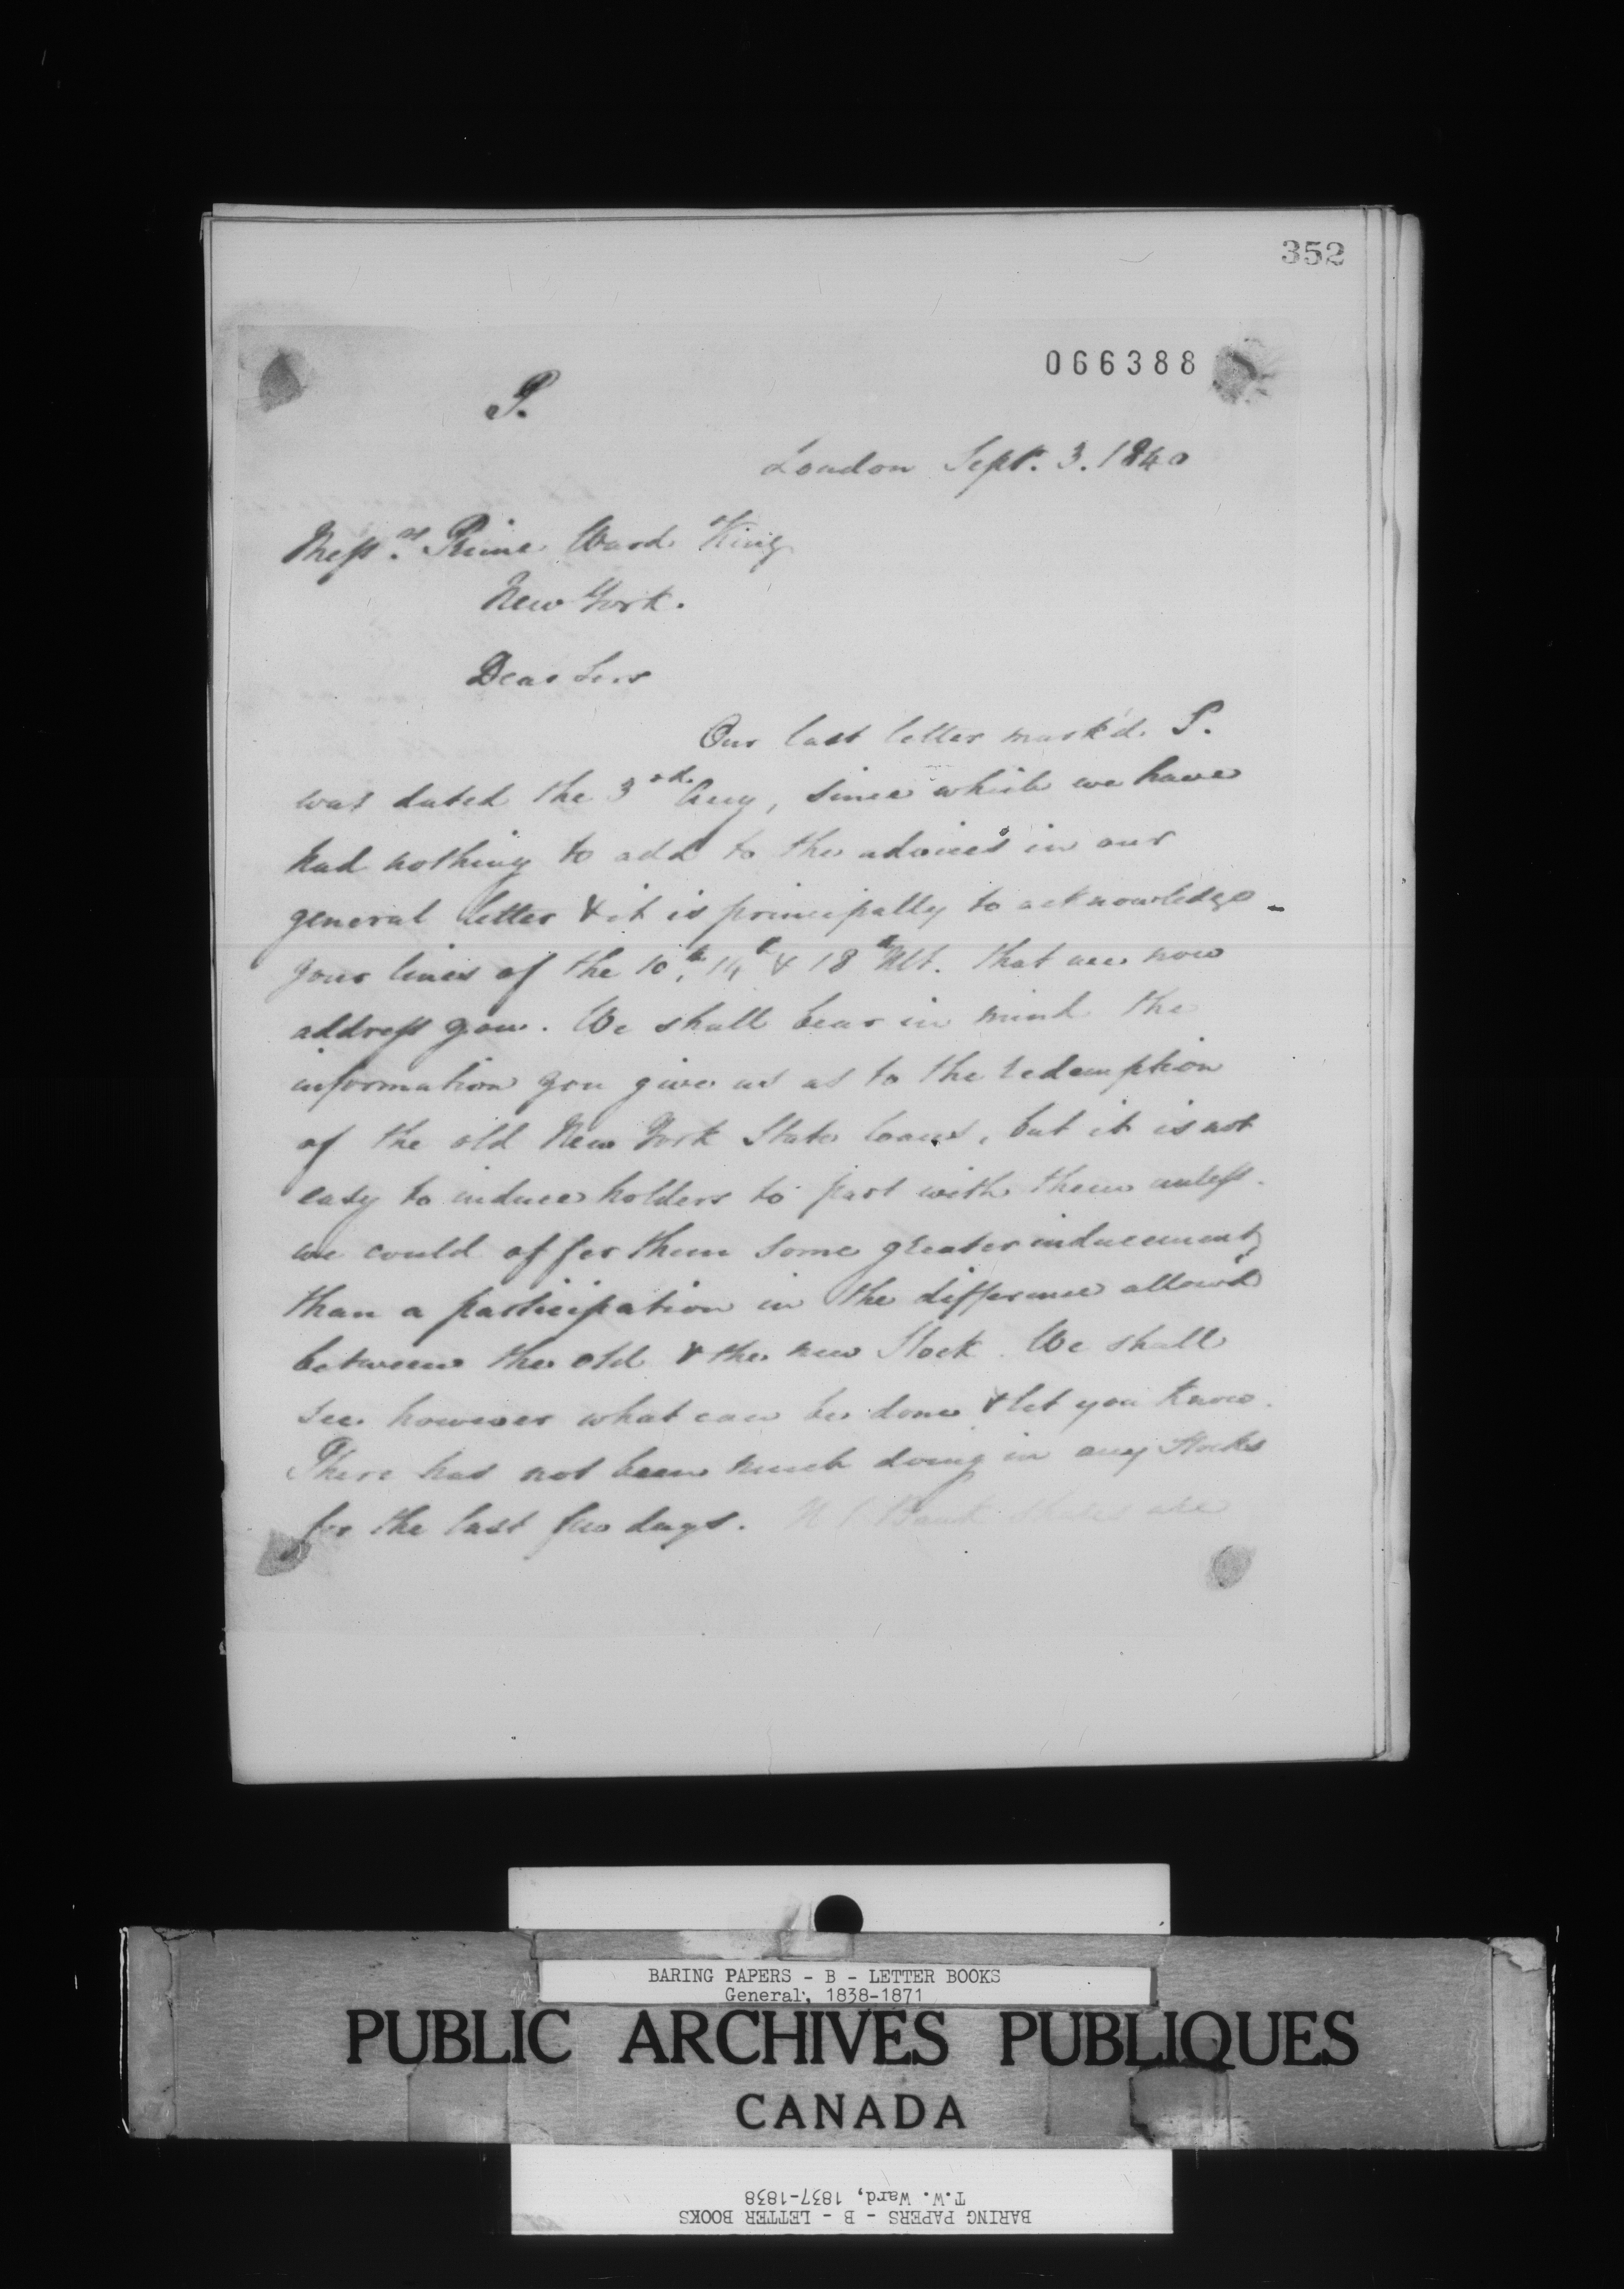 352
066388
P.
London Sept. 3. 1840
Mess.rs Prime Ward King
New York.
Dear Sirs
Our last letter mark'd P.
was dated the 3rd Aug, since which we have
had nothing to add to the advices in our
general letter & it is principally to acknowledge
your lines of the 10th, 14th & 18th Ult. that we now
address you. We shall bear in mind the
information you give us as to the redemption
of the old New York State loans, but it is not
easy to induce holders to part with them unless
we could offer them some greater inducement
than a participation in the difference allow'd
between the old & the new Stock. We shall
see however what can be done & let you know.
There has not been much doing in any Stocks
for the last few days. Bank are
BARING PAPERS - B - LETTER BOOKS
General, 1838-1871
PUBLIC ARCHIVES PUBLIQUES
CANADA
BARING PAPERS - B - LETTER BOOKS
T.W. Ward, 1837-1838